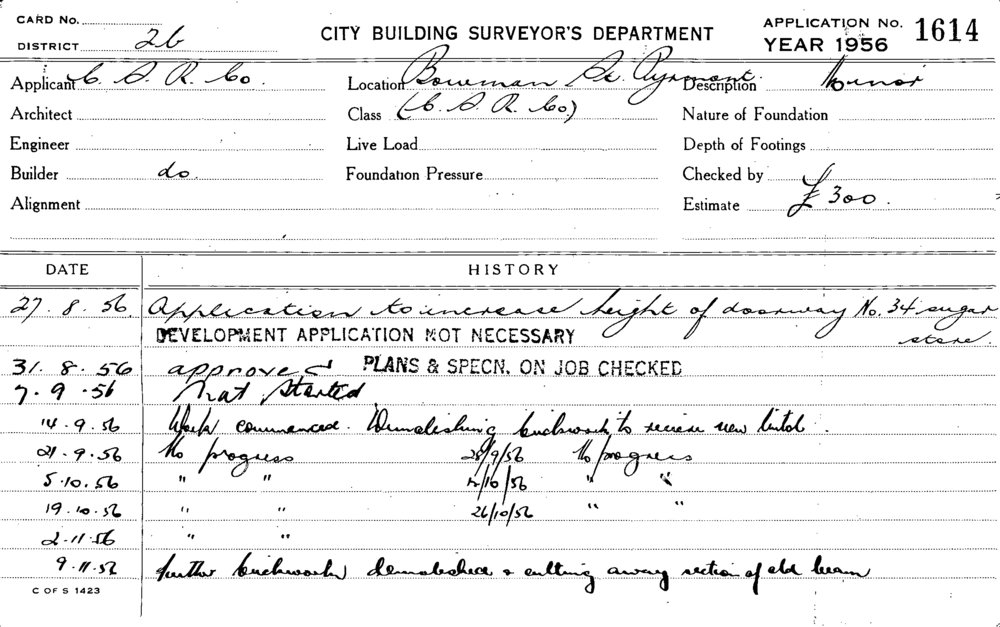 CARD No.
DISTRICT 26
CITY BUILDING SURVEYOR'S DEPARTMENT
APPLICATION No. 1614
YEAR 1956
Applicant C. S. R. Co. Location Bowman St. Pyrmont. Description Minor
Architect Class (C. S. R. Co.) Nature of Foundation
Engineer Live Load Depth of Footings
Builder do. Foundation Pressure Checked by
Alignment Estimate £300.
DATE HISTORY
27.8.56. Application to increase height of doorway No. 34 sugar
store.
DEVELOPMENT APPLICATION NOT NECESSARY
31.8.56 approved PLANS & SPECN. ON JOB CHECKED
7.9.56 Not Started
14.9.56 Work commenced. Demolishing brickwork to receive new lintol.
21.9.56 No progress 28/9/56 No progress
5.10.56 " " 12/10/56 " "
19.10.56 " " 26/10/56 " "
2.11.56 " "
9.11.56 further brickwork demolished & cutting away section of old beam
C OF S 1423